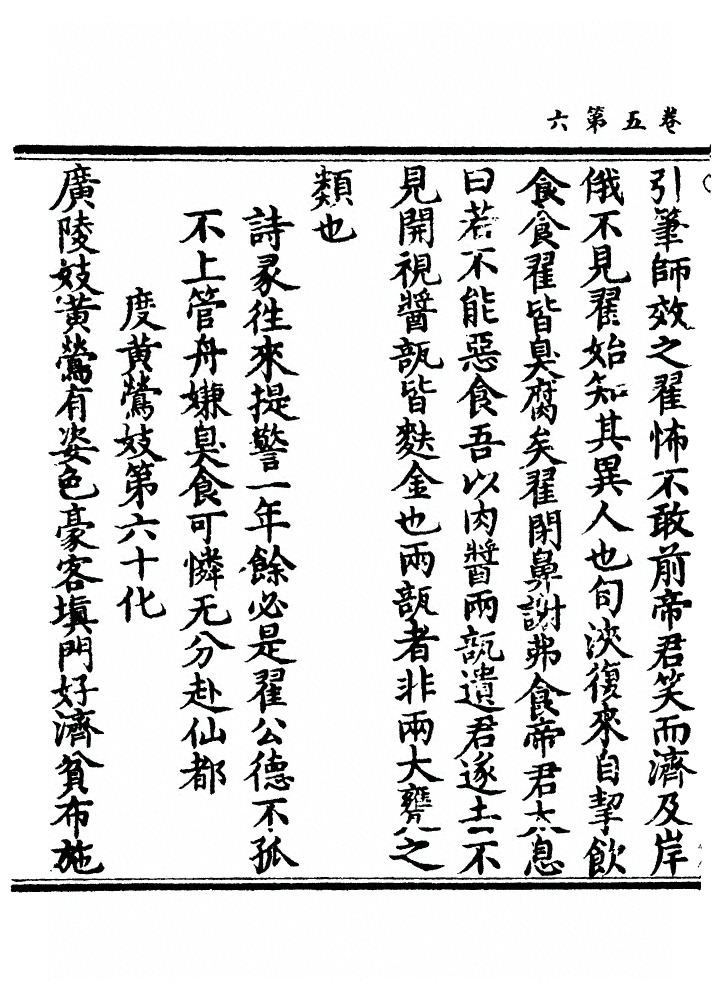 卷五第六
引筆師效之翟怖不敢前帝君笑而濟及岸
俄不見翟始知其異人也旬浹復來自挈飲
食食翟皆臭腐矣翟閉鼻謝弗食帝君太息
曰若不能惡食吾以肉醬兩瓿遺君遂去不
見開視醬瓿皆麩金也兩瓿者非兩大甕之
類也
詩彖徃來提警一年餘必是翟公德不孤
不上管舟嫌臭食可憐无分赴仙都
度黄鶯妓第六十化
廣陵妓黄鶯有姿色豪客塡門好濟貧布施